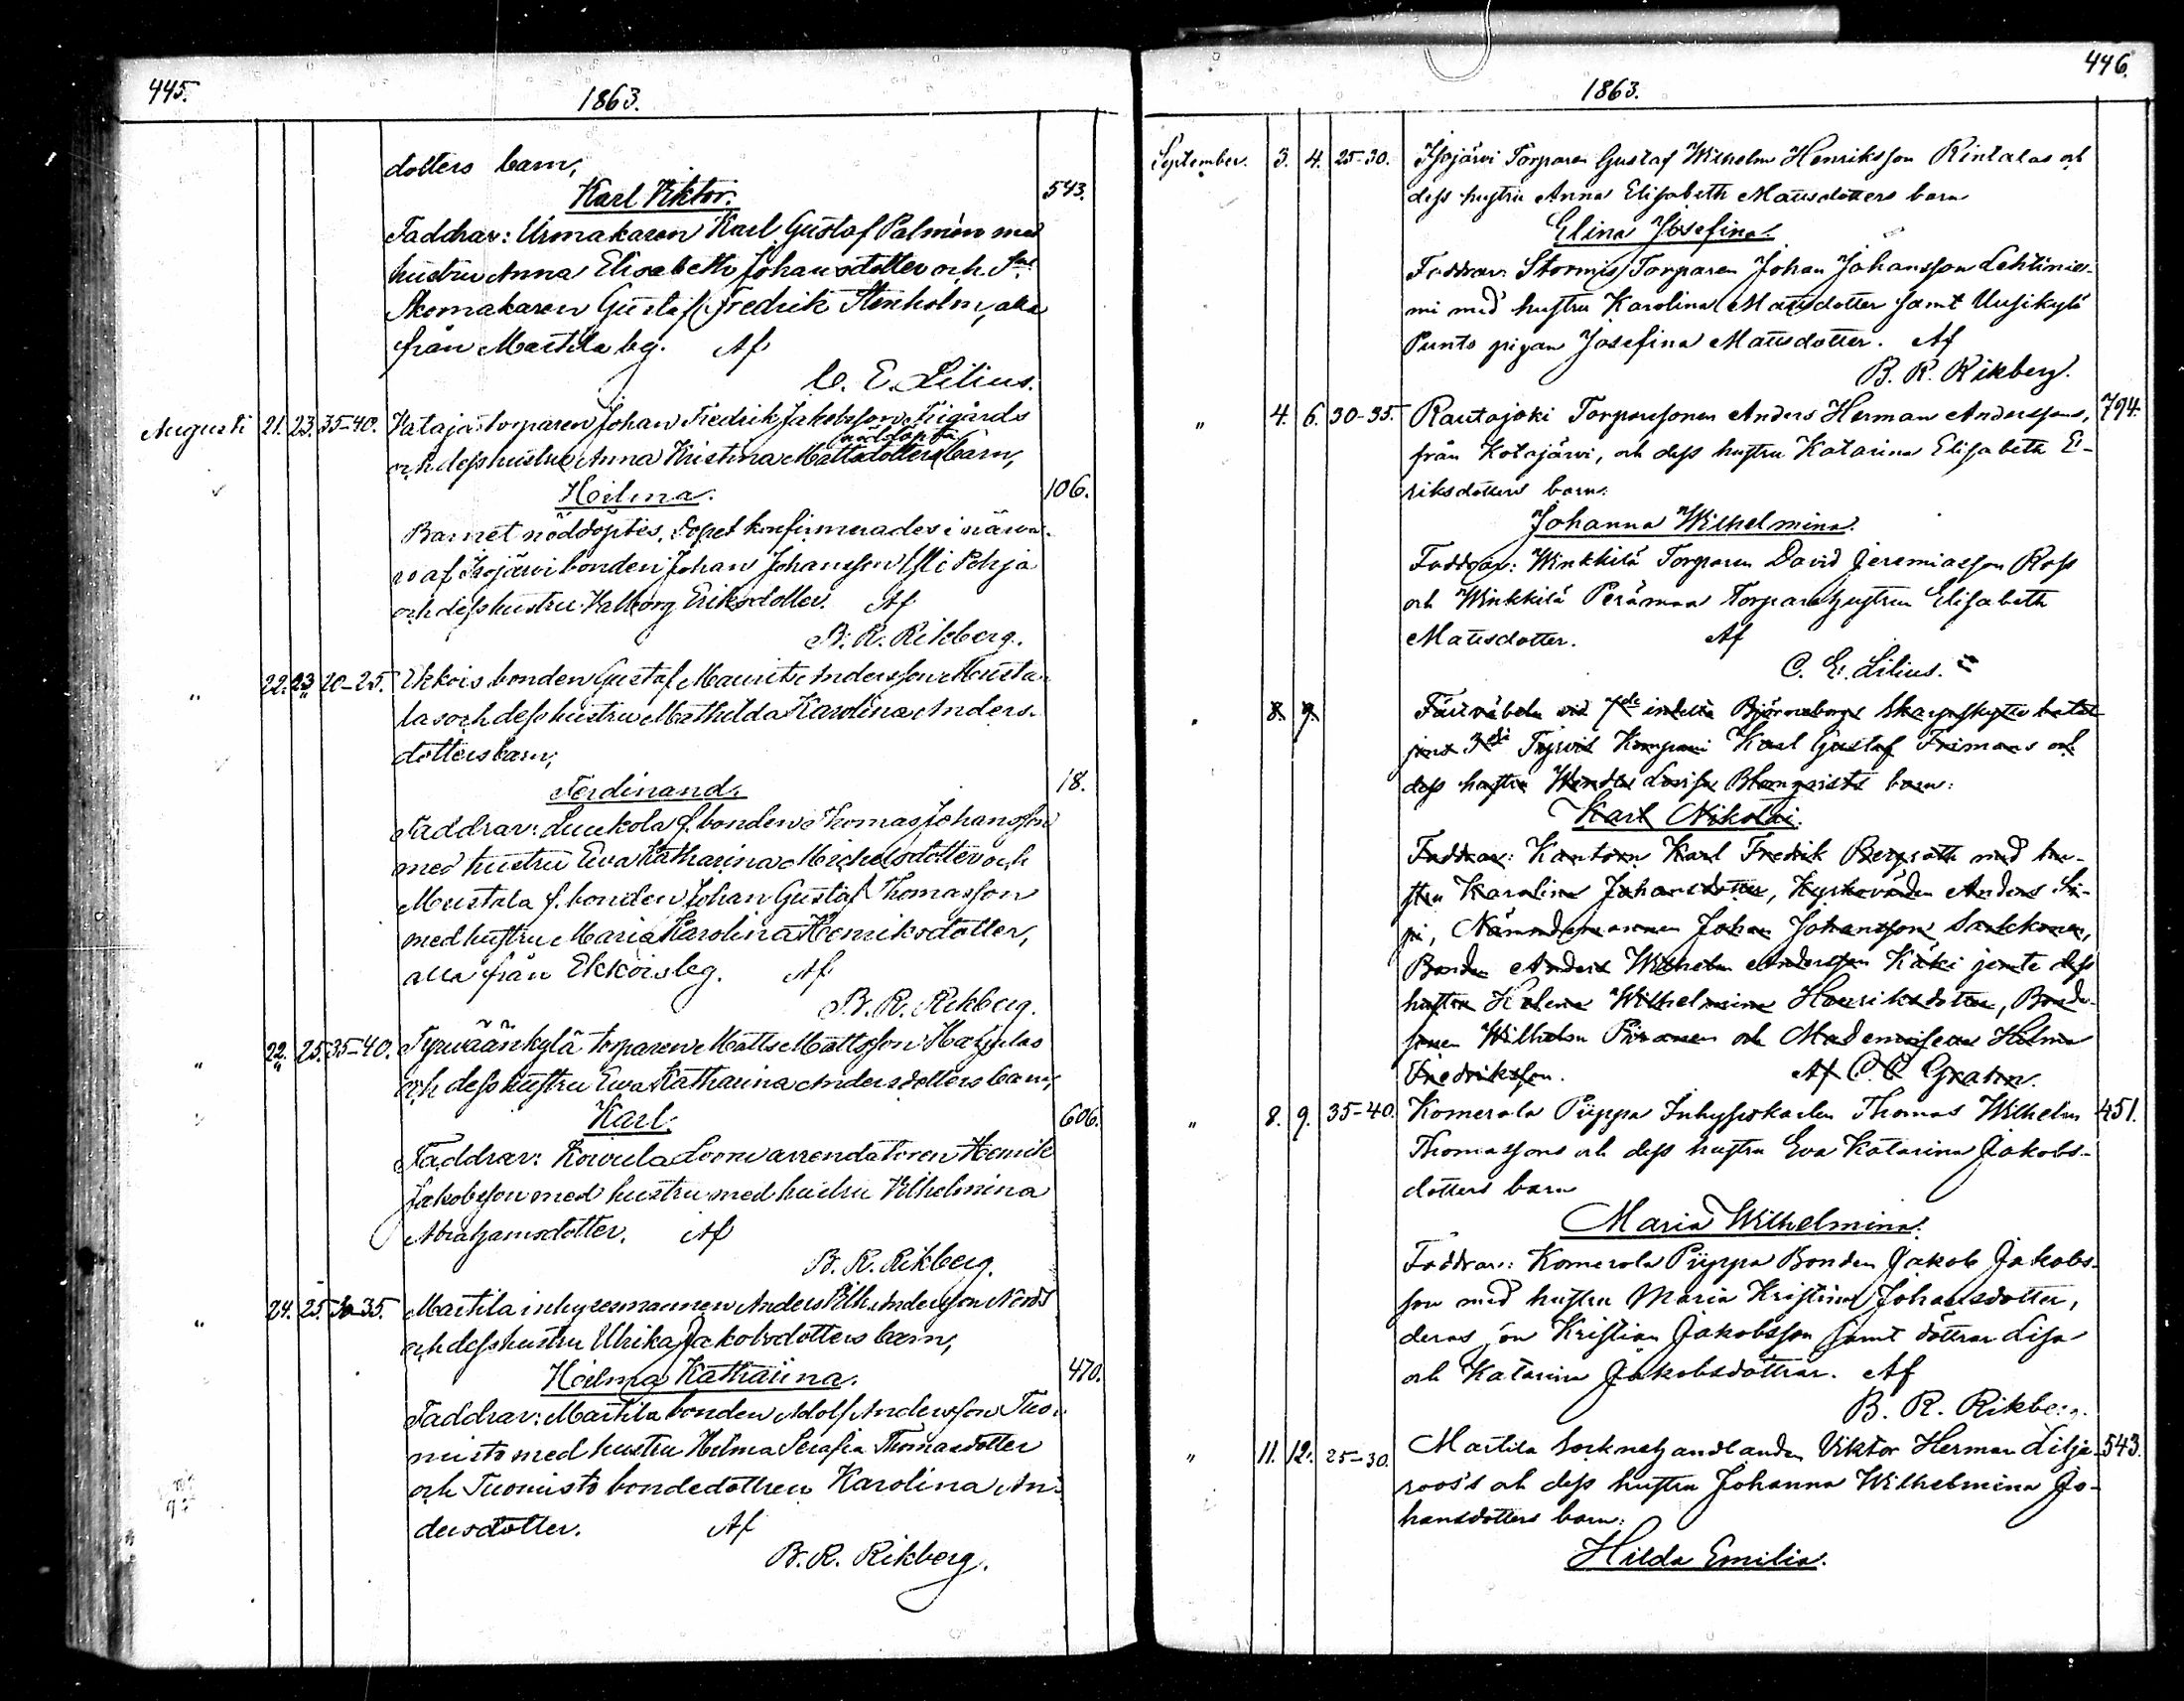 445.
1863.
dotters barn,
Karl Viktor. 543.
Faddrar: Urmakaren Karl Gustaf Palmén med
hustru Anna Elisabeth Johansdotter och
Skomakaren Gustaf Fredrik Stenholm, alla
från Marttila by. Af
C. E. Lilius.
Augusti 21. 23. 35-40. Kataja torparen Johan Fredrik Jakobsson Frigårds
nöddöpta
och dess hustru Anna Kristina Mattsdotters barn,
Heilma. 106.
Barnet nöddöptes. Dopet konfirmerades i närva-
ro af Isojärvi bonden Johan Johansson Yli Pohja
och dess hustru Valborg Eriksdotter. Af
B. R. Rikberg.
" 22. 23. 20-25. Ekkois bonden Gustaf Maurits Andersson Musta-
las och dess hustru Mathilda Karolina Anders-
dotters barn,
Ferdinand. 18.
Faddrar: Luukola f. bonden Thomas Johansson
med hustru Eva Katharina Michelsdotter och
Mustala f. bonden Johan Gustaf Thomasson
med hustru Maria Karolina Henriksdotter,
alla från Ekkois by. Af
B. R. Rikberg.
" 22. 25. 35-40. Tyrväänkylä torparen Matts Mattsson
och dess hustru Eva Katharina Andersdotters barn,
Karl. 606.
Faddrar: Kowula Loom arrendatoren Henrik
Jakobsson med hustru med hustru Vilhelmina
Abrahamsdotter. Af
B. R. Rikberg.
" 24. 25. 30-35. Marttila inhysesmannen Anders Vilh. Andersson
och dess hustru Ulrika Jakobsdotters barn,
Heilma Katharina. 470.
Faddrar: Marttila bonden Adolf Andersson Tuo-
misto med hustru Helma Serafia Thomasdotter
och Tuomisto bondedottren Karolina An-
dersdotter. Af
B. R. Rikberg.
446.
1863.
September. 3. 4. 25-30. Isojärvi Torparen Gustaf Wilhelm Henriksson Rintalas och
dess hustru Anna Elisabeth Mattsdotters barn
Elina Josefina.
Faddrar: Stormis Torparen Johan Johansson Lehtinie-
mi med hustru Karolina Mattsdotter samt Uusikylä
Punto pigan Josefina Mattsdotter. Af
B. R. Rikberg.
" 4. 6. 30-35. Rautajoki Torparsonen Anders Herman Anderssons, 794.
från Kotajärvi, och dess hustru Katarina Elisabeth E-
riksdotters barn:
Johanna Wilhelmina.
Faddrar: Winkkilä Torparen David Jeremiasson Ross
och Winkkilä Perämaa Torparehustrun Elisabeth
Mattsdotter. Af
C. E. Lilius.
8. 9. Fältväbeln vid 7de indelta Björneborgs skarpskytte batal-
jons 3dje Tyrvis Kompani Karl Gustaf Frimans och
dess hustru Wendla Lovisa Blomqvists barn:
Karl Nikolai.
Faddrar: Kantorn Karl Fredrik Bergroth med hu-
stru Karolina Johansdotter, Kyrkovärden Anders Si-
pi, Nämndemannen Johan Johansson Sarkkonen,
Bonden Anders Wilhelm Andersson Käki jemte dess
hustru Helena Wilhelmina Henriksdotter, Bonde-
sonen Wilhelm Piiranen och Mademoisellen Hilma
Fredriksson. Af C. C. Grahn.
" 8. 9. 35-40. Komerola Piippa Inhyseskarlen Thomas Wilhelm 451.
Thomassons och dess hustru Eva Katarina Jakobs-
dotters barn
Maria Wilhelmina.
Faddrar: Komerola Piippa Bonden Jakob Jakobs-
son med hustru Maria Kristina Johansdotter,
deras son Kristian Jakobsson samt döttrar Lisa
och Katarina Jakobsdöttrar. Af
B. R. Rikberg.
" 11. 12. 25-30. Marttila Socknehandlanden Viktor Herman Lilje- 543.
roos's och dess hustru Johanna Wilhelmina Jo-
hansdotters barn:
Hilda Emilia.